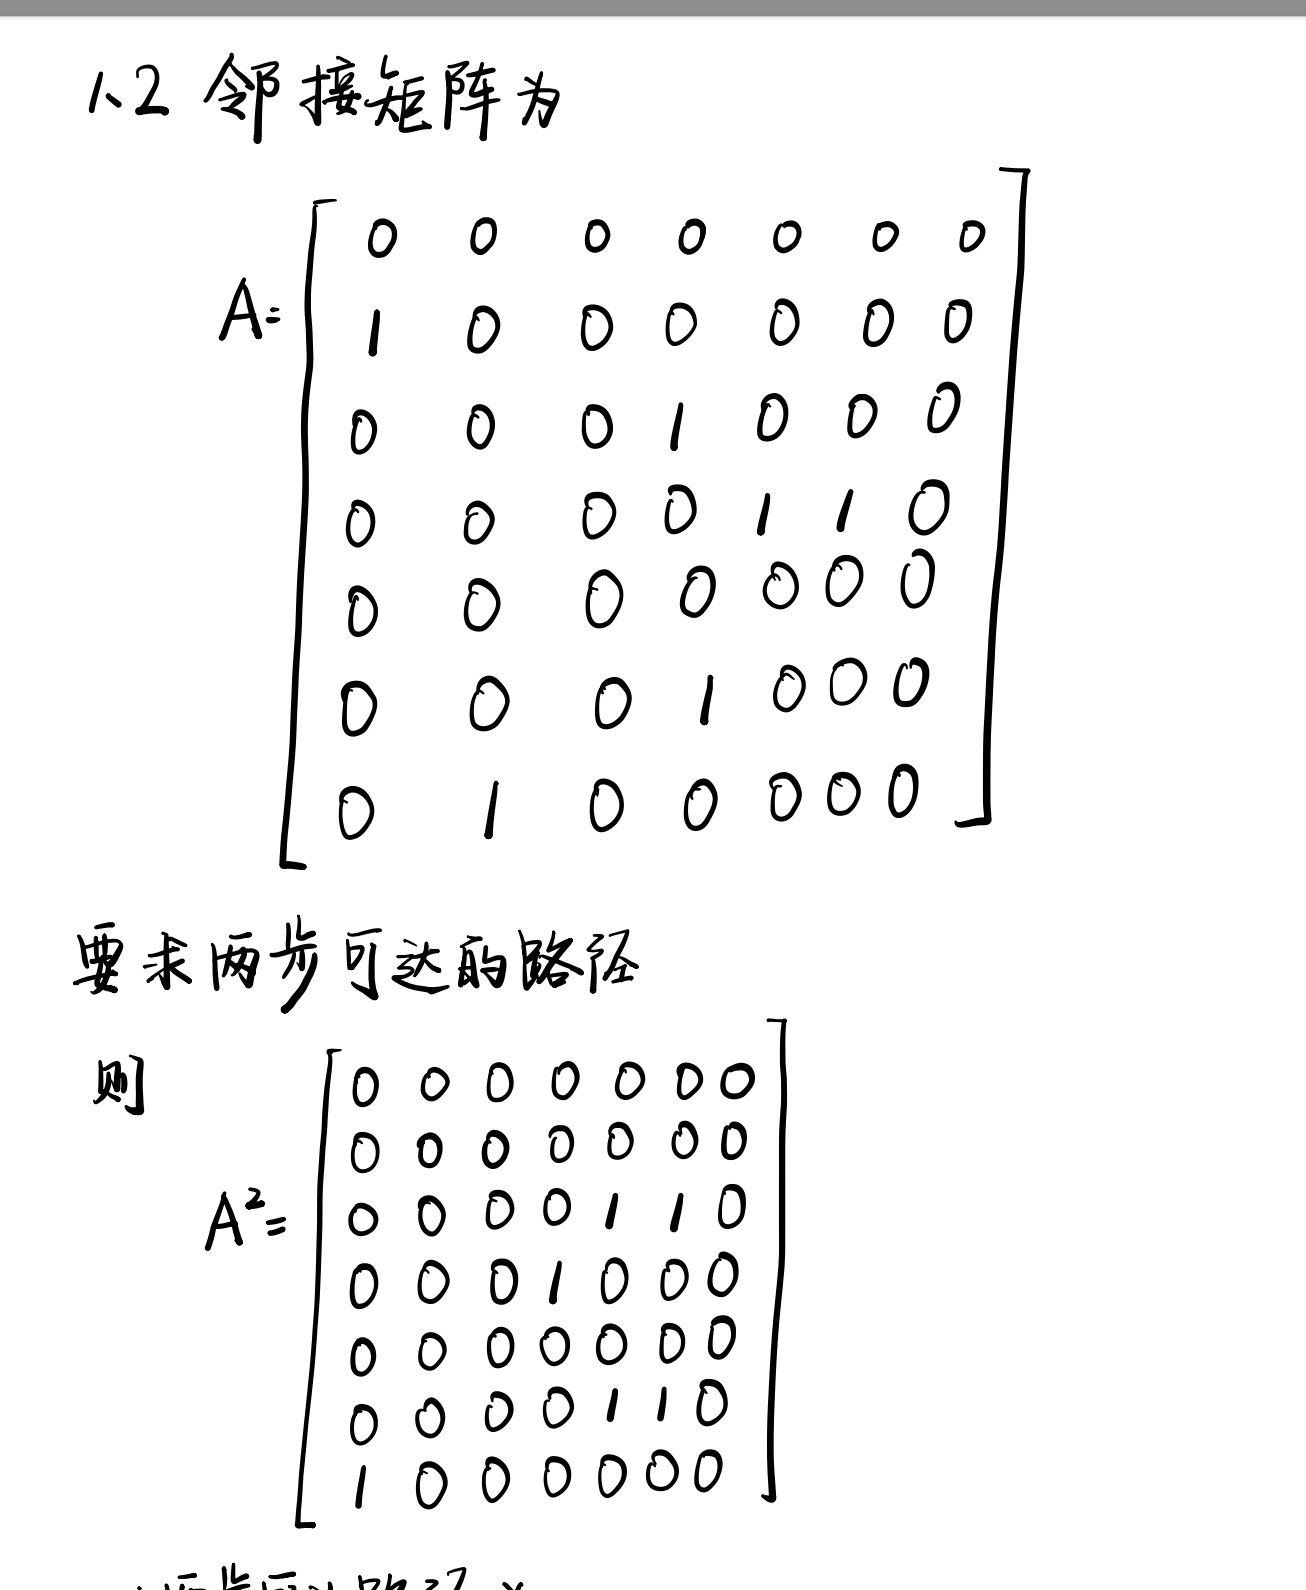 1、2 邻接矩阵为
A=
0 0 0 0 0 0 0
1 0 0 0 0 0 0
0 0 0 1 0 0 0
0 0 0 0 1 1 0
0 0 0 0 0 0 0
0 0 0 1 0 0 0
0 1 0 0 0 0 0
要求两步可达的路径
则
A²=
0 0 0 0 0 0 0
0 0 0 0 0 0 0
0 0 0 0 1 1 0
0 0 0 1 0 0 0
0 0 0 0 0 0 0
0 0 0 0 1 1 0
1 0 0 0 0 0 0